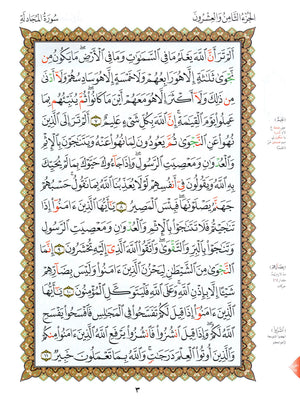 الجزء الثامن والعشرون
سورة المجادلة
أَلَمْ تَرَ أَنَّ ٱللَّهَ يَعْلَمُ مَا فِى ٱلسَّمَٰوَٰتِ وَمَا فِى ٱلْأَرْضِ مَا يَكُونُ مِن
نَّجْوَىٰ ثَلَٰثَةٍ إِلَّا هُوَ رَابِعُهُمْ وَلَا خَمْسَةٍ إِلَّا هُوَ سَادِسُهُمْ وَلَآ أَدْنَىٰ
مِن ذَٰلِكَ وَلَآ أَكْثَرَ إِلَّا هُوَ مَعَهُمْ أَيْنَ مَا كَانُوا۟ ثُمَّ يُنَبِّئُهُم بِمَا
عَمِلُوا۟ يَوْمَ ٱلْقِيَٰمَةِ إِنَّ ٱللَّهَ بِكُلِّ شَىْءٍ عَلِيمٌ ٧ أَلَمْ تَرَ إِلَى ٱلَّذِينَ
نُهُوا۟ عَنِ ٱلنَّجْوَىٰ ثُمَّ يَعُودُونَ لِمَا نُهُوا۟ عَنْهُ وَيَتَنَٰجَوْنَ بِٱلْإِثْمِ
وَٱلْعُدْوَٰنِ وَمَعْصِيَتِ ٱلرَّسُولِ وَإِذَا جَآءُوكَ حَيَّوْكَ بِمَا لَمْ يُحَيِّكَ
بِهِ ٱللَّهُ وَيَقُولُونَ فِىٓ أَنفُسِهِمْ لَوْلَا يُعَذِّبُنَا ٱللَّهُ بِمَا نَقُولُ حَسْبُهُمْ
جَهَنَّمُ يَصْلَوْنَهَا فَبِئْسَ ٱلْمَصِيرُ ٨ يَٰٓأَيُّهَا ٱلَّذِينَ ءَامَنُوٓا۟ إِذَا
تَنَٰجَيْتُمْ فَلَا تَتَنَٰجَوْا۟ بِٱلْإِثْمِ وَٱلْعُدْوَٰنِ وَمَعْصِيَتِ ٱلرَّسُولِ
وَتَنَٰجَوْا۟ بِٱلْبِرِّ وَٱلتَّقْوَىٰ وَٱتَّقُوا۟ ٱللَّهَ ٱلَّذِىٓ إِلَيْهِ تُحْشَرُونَ ٩ إِنَّمَا
ٱلنَّجْوَىٰ مِنَ ٱلشَّيْطَٰنِ لِيَحْزُنَ ٱلَّذِينَ ءَامَنُوا۟ وَلَيْسَ بِضَآرِّهِمْ
شَيْـًٔا إِلَّا بِإِذْنِ ٱللَّهِ وَعَلَى ٱللَّهِ فَلْيَتَوَكَّلِ ٱلْمُؤْمِنُونَ ١٠ يَٰٓأَيُّهَا ٱلَّذِينَ
ءَامَنُوٓا۟ إِذَا قِيلَ لَكُمْ تَفَسَّحُوا۟ فِى ٱلْمَجَٰلِسِ فَٱفْسَحُوا۟ يَفْسَحِ
ٱللَّهُ لَكُمْ وَإِذَا قِيلَ ٱنشُزُوا۟ فَٱنشُزُوا۟ يَرْفَعِ ٱللَّهُ ٱلَّذِينَ ءَامَنُوا۟ مِنكُمْ
وَٱلَّذِينَ أُوتُوا۟ ٱلْعِلْمَ دَرَجَٰتٍ وَٱللَّهُ بِمَا تَعْمَلُونَ خَبِيرٌ ١١
٣